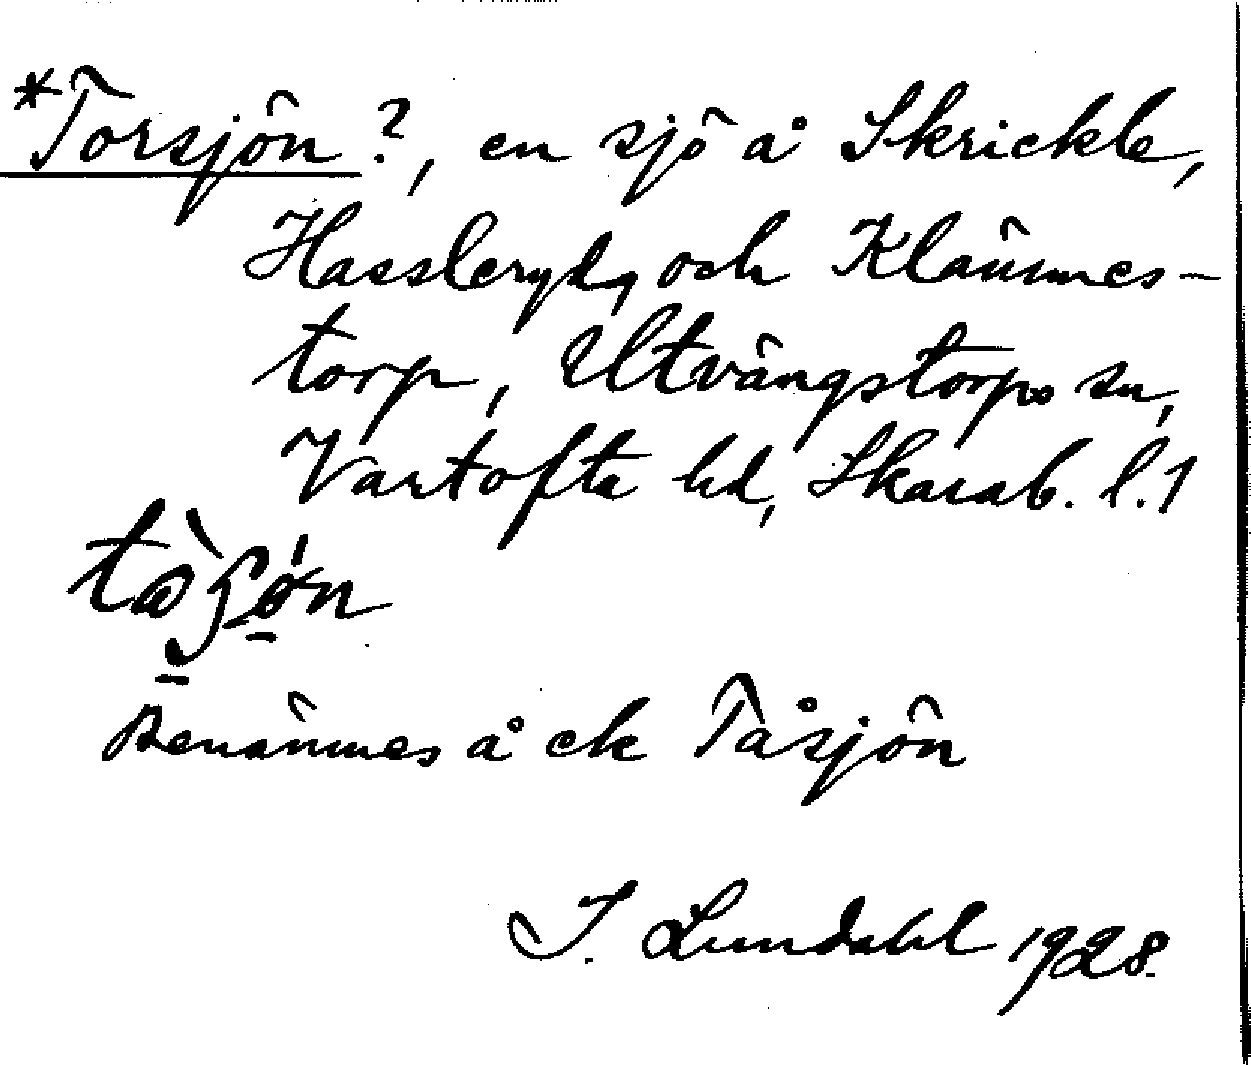 *Torsjön?, en sjö å Skrickle,
Hassleryd, och Klämmes-
torp, Utvängstorps sn,
Vartofta hd, Skarab. l.1
Benämnes å ek Tåsjön
I. Lundahl 1928.